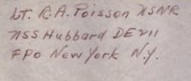 Lt. R.A. Poisson USNR
USS Hubbard DE 211
FPO New York N.Y.